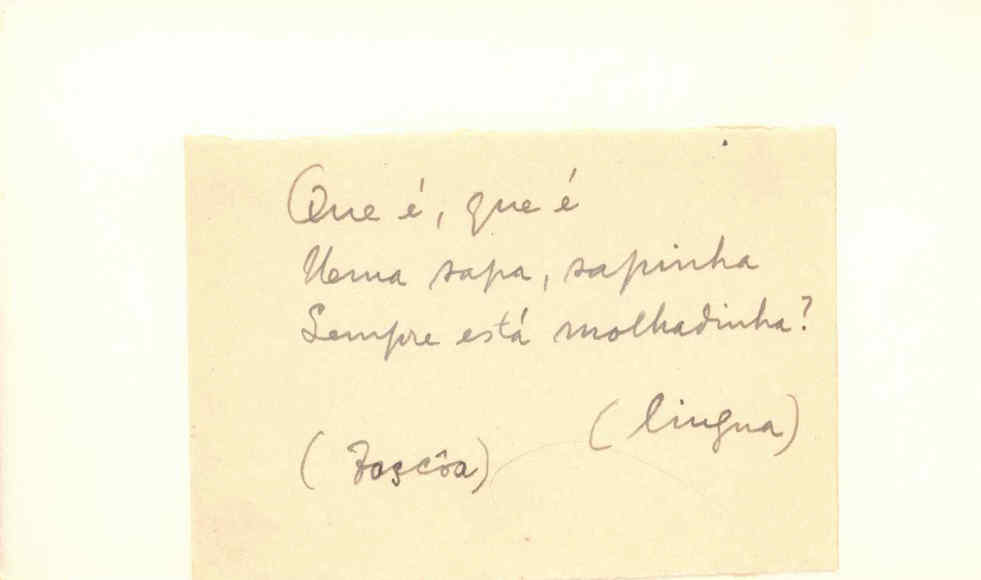 Que é, que é
Uma sapa, sapinha
Sempre está molhadinha?
(lingua)
(Fozcôa)